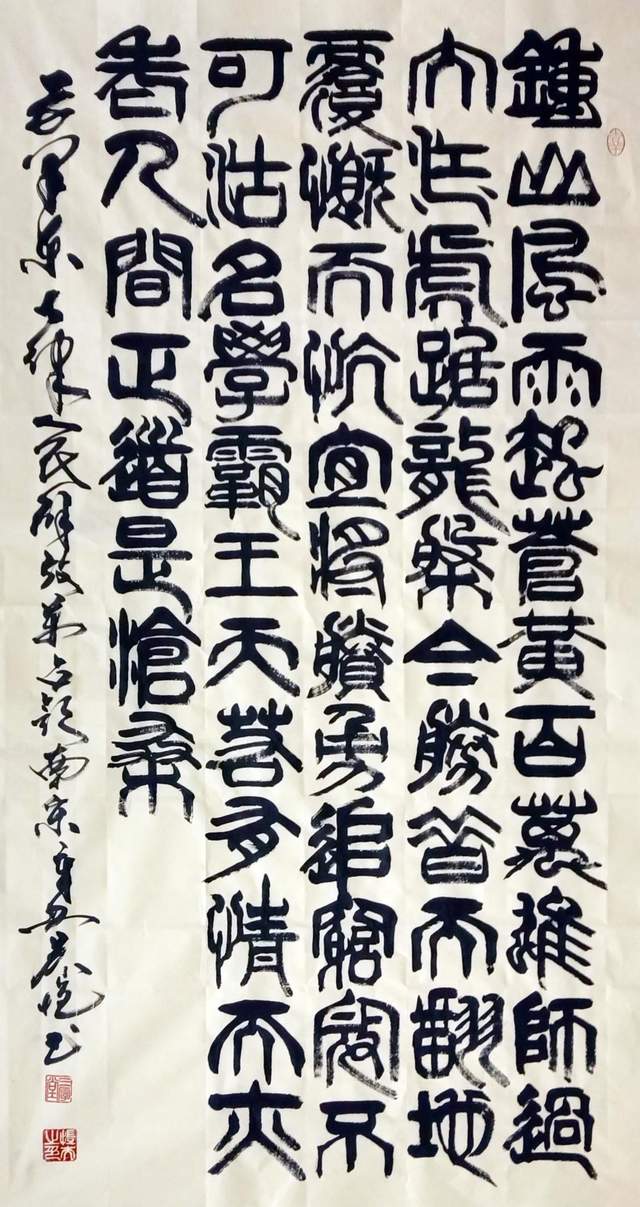 鍾山風雨起蒼黃百萬雄師過
大江虎踞龍盤今勝昔天翻地
覆慨而忼宜將賸勇追窮寇不
可沽名學霸王天若有情天亦
老人間正道是滄桑
毛泽东七律人民解放军占领南京辛丑书